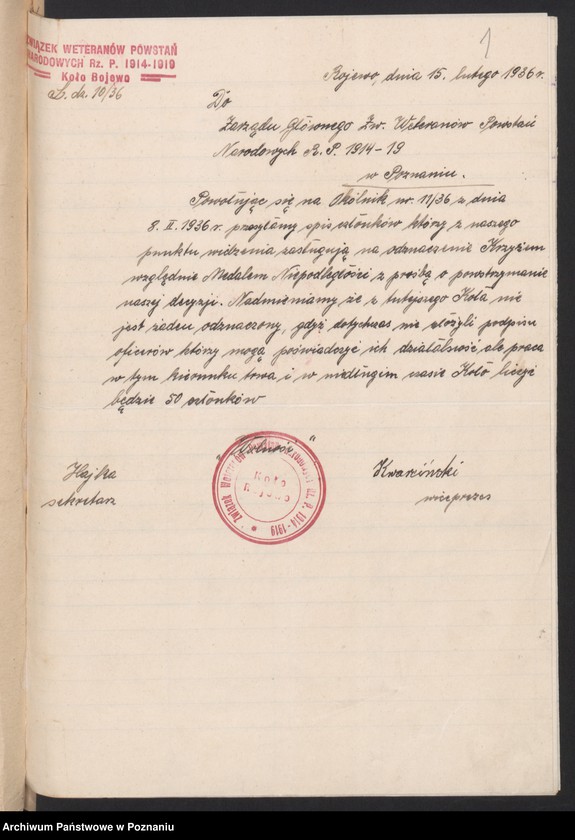 ZWIĄZEK WETERANÓW POWSTAŃ
NARODOWYCH Rz. P. 1914-1919
Koło Rojewo
L. dz. 10/36
1
Rojewo, dnia 15. lutego 1936 r.
Do
Zarządu Głównego Zw. Weteranów Powstań
Narodowych R. P. 1914-19
w Poznaniu.
Powołując się na Okólnik nr. 11/36 z dnia
8. II. 1936 r. przesyłamy spis członków którzy z naszego
punktu widzenia zasługują na odznaczenie Krzyżem
względnie Medalem Niepodległości z prośbą o powstrzymanie
naszej decyzji. Nadmieniamy że z tutejszego Koła nie
jest żaden odznaczony, gdyż dotychczas nie złożyli podpisu
oficerów którzy mogą poświadczyć ich działalność ale praca
w tym kierunku trwa i w niedługim czasie Koło liczyć
będzie 50 członków
"Wolność"
Hajka
sekretarz
Kwarciński
wiceprezes
Związek Weteranów Rz. P. 1914-1919
Koło
Rojewo
Archiwum Państwowe w Poznaniu